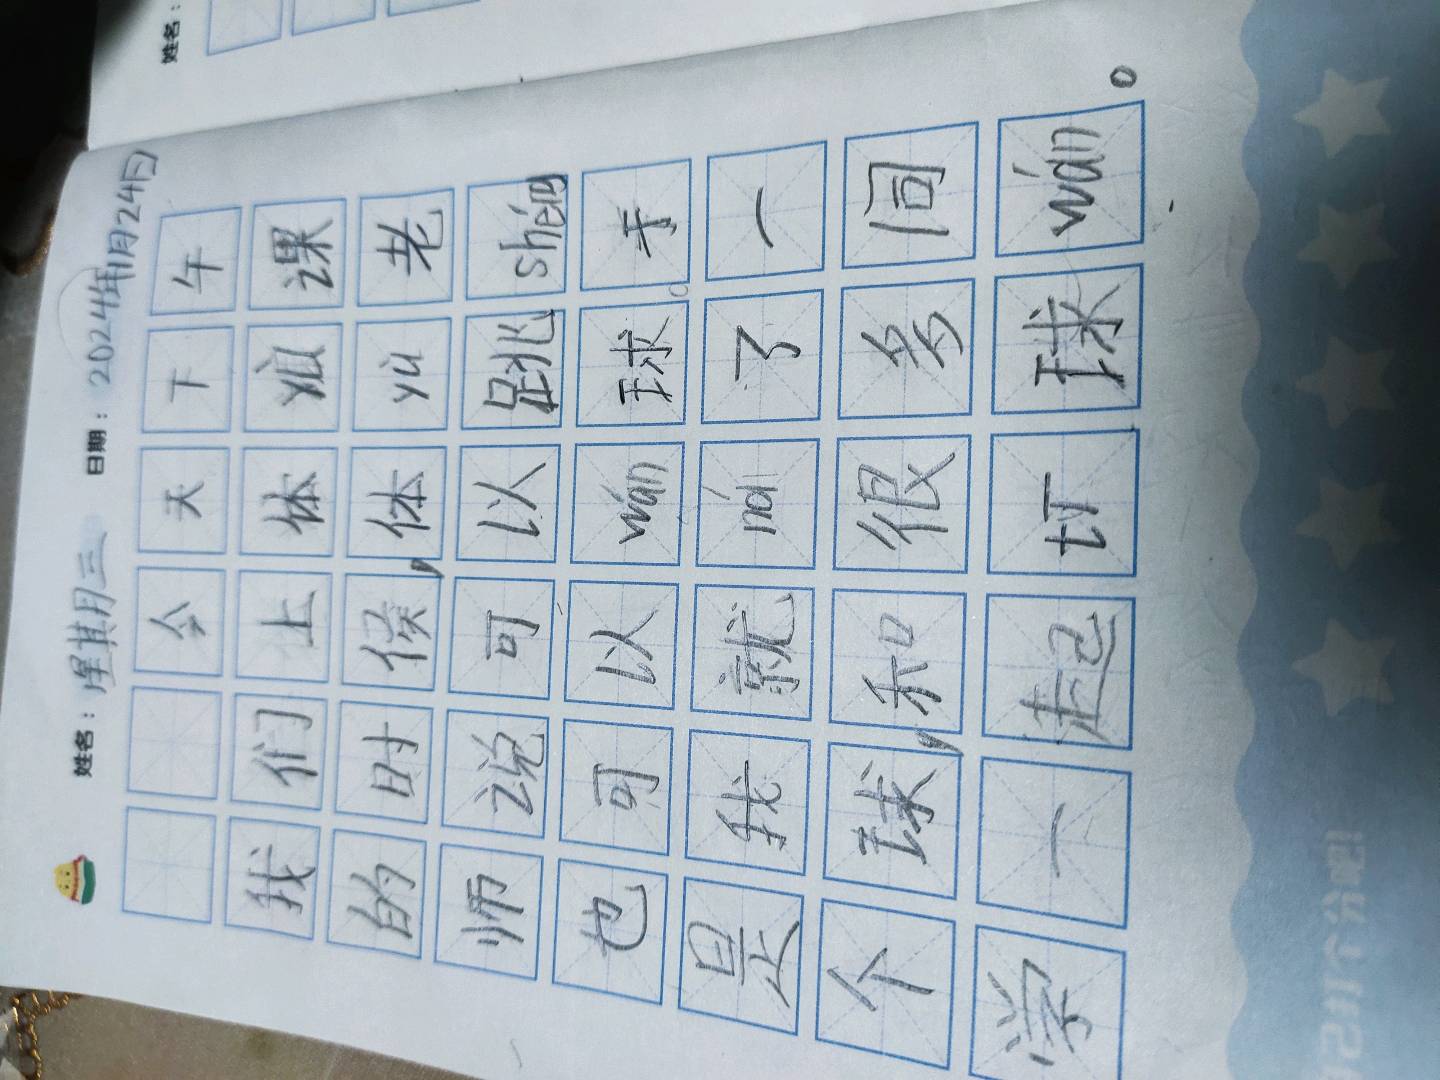 姓名：
姓名：星期三 日期：2024年1月24日
今天下午
我们上体yù课
的时候，体yù老
师说可以跳shéng
也可以wán球。于
是我就ná了一
个球，和很多同
学一起打球wán。
打个分吧!